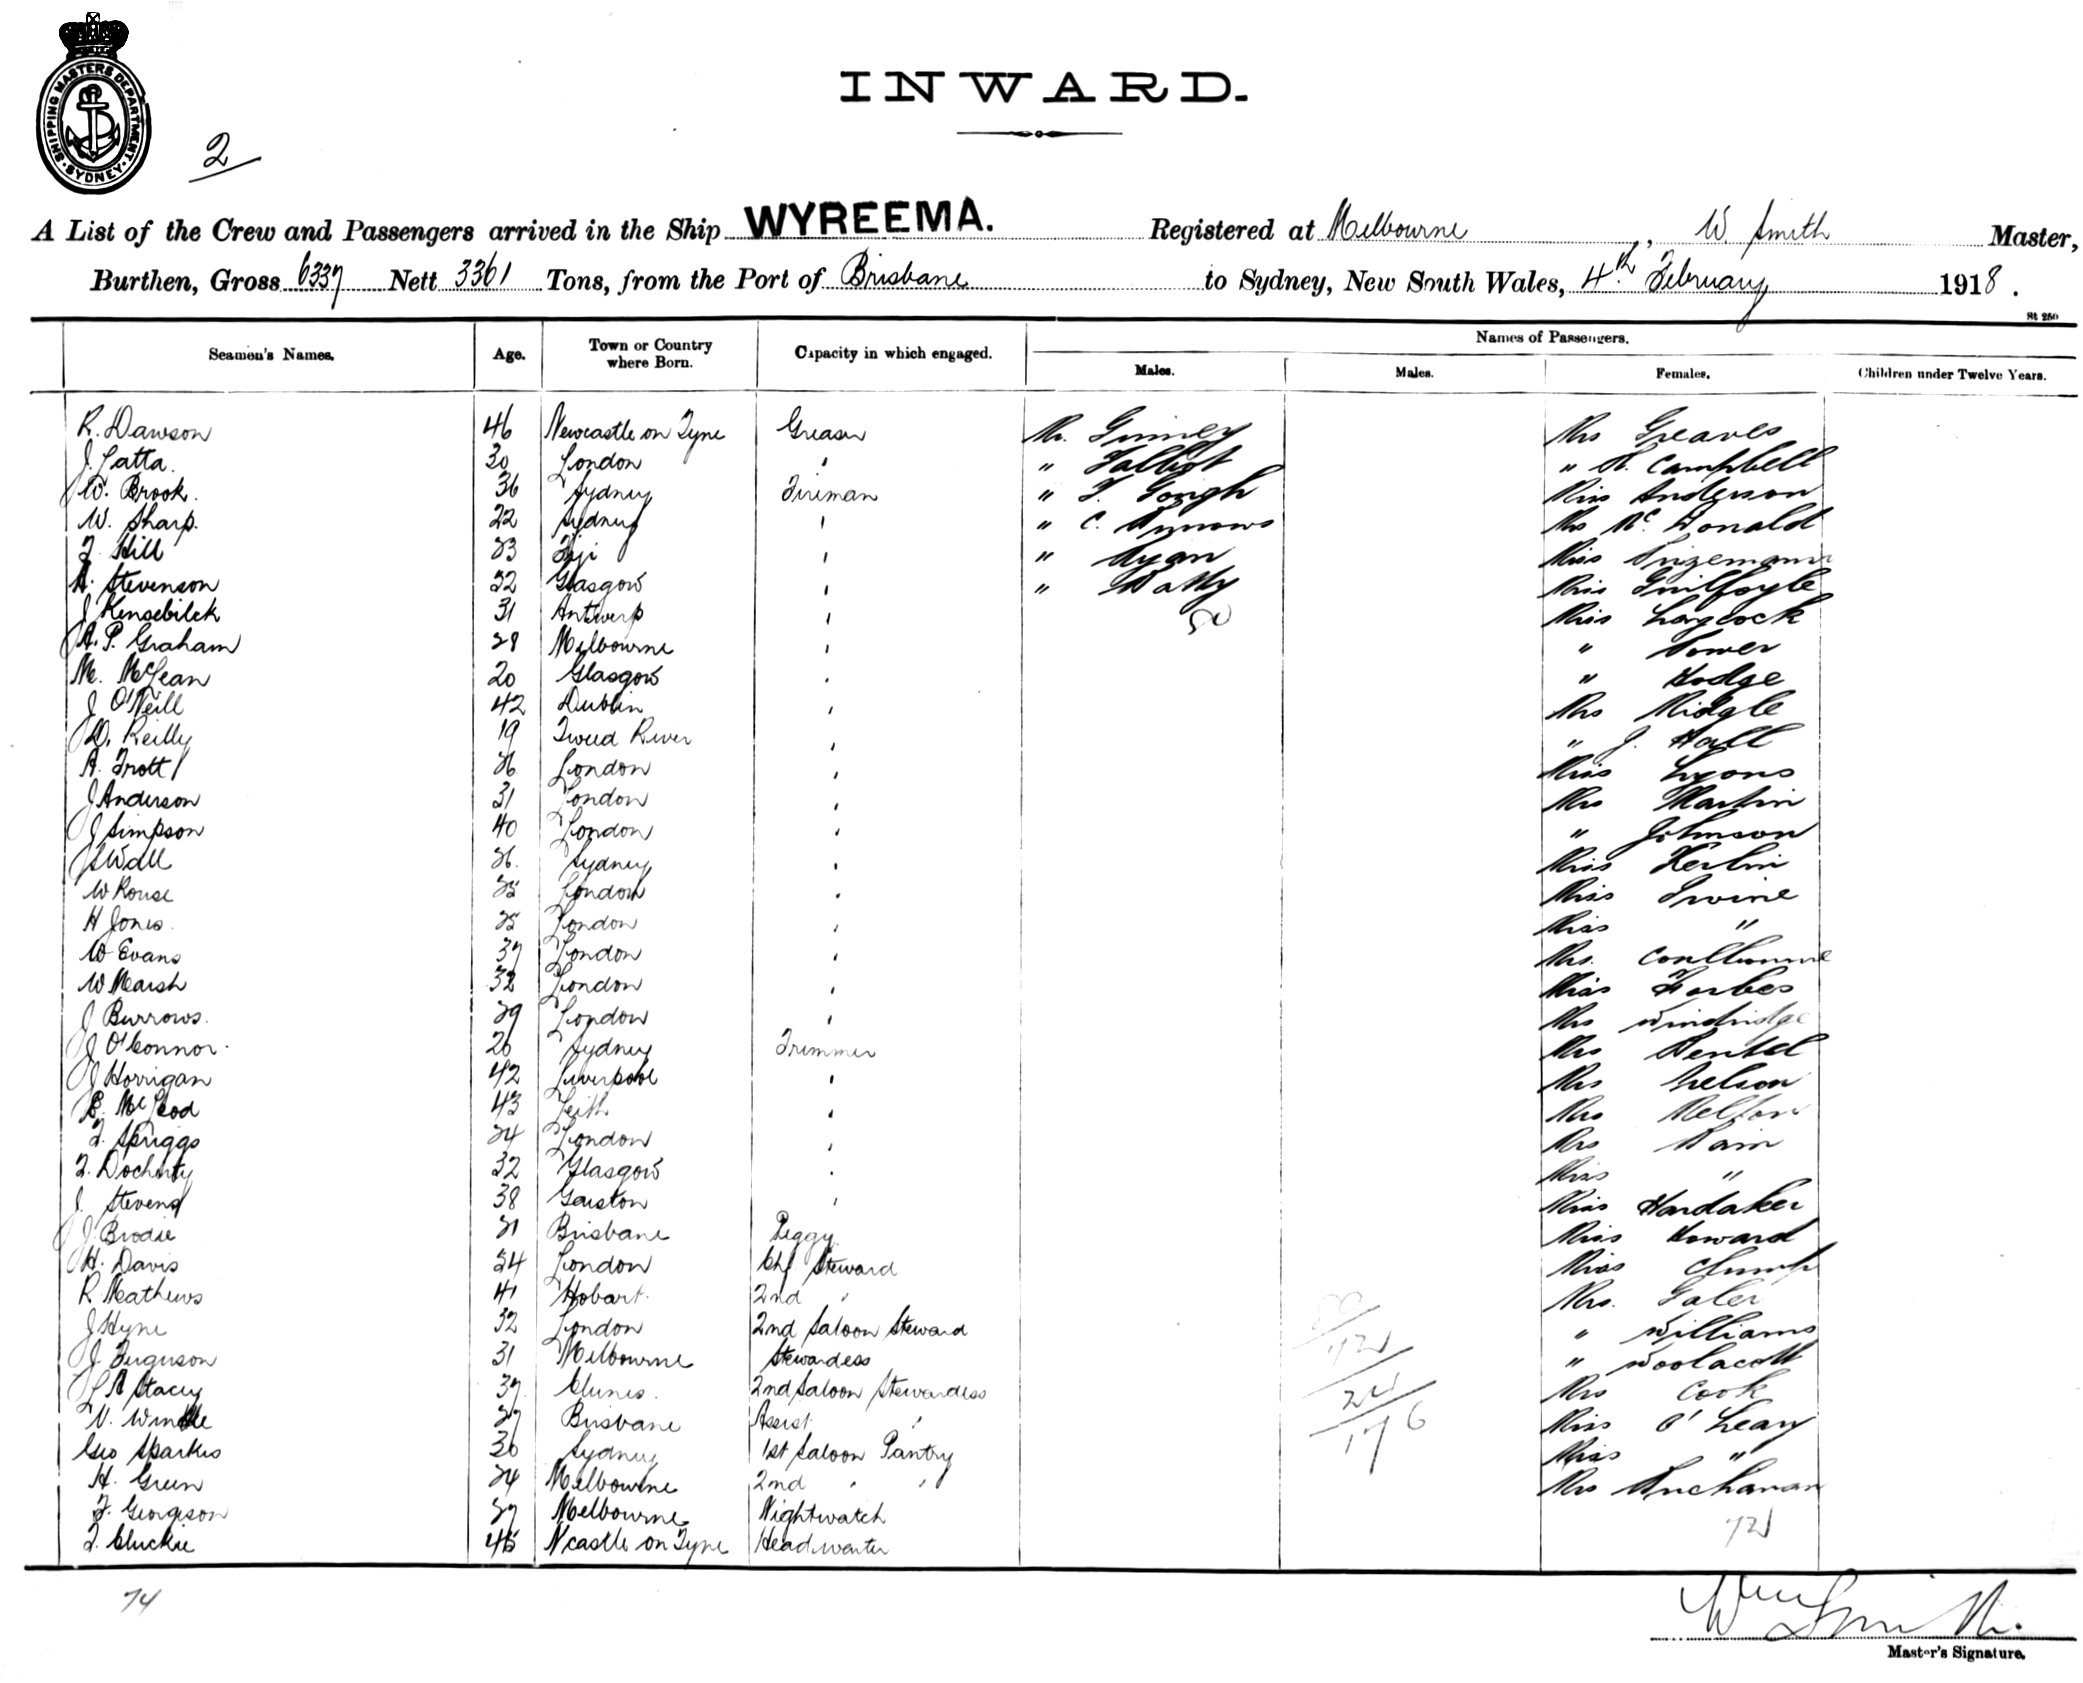 SHIPPING MASTERS DEPARTMENT. SYDNEY.
2
INWARD.
A List of the Crew and Passengers arrived in the Ship WYREEMA. Registered at Melbourne, W. Smith Master,
Burthen, Gross 6337 Nett 3361 Tons, from the Port of Brisbane to Sydney, New South Wales, 4th February 1918.
St 250
Seamen's Names. Age. Town or Country where Born. Capacity in which engaged. Names of Passengers.
Males. Males. Females. Children under Twelve Years.
R. Dawson 46 Newcastle on Tyne Greaser Mr. Mrs Greaves
J. Latta. 30 London " " Talbot " Campbell
W. Brook. 36 Sydney Fireman " T. Gough Miss Anderson
W. Sharp. 22 Sydney " " C. Mrs Mc Donald
F. Hill 23 Fiji " " Ryan Miss
A. Stevenson 22 Glasgow " " Batty Miss Guilfoyle
J Kensebilck 31 Antwerp " 50 Miss Laycock
A. P. Graham 28 Melbourne " " Tower
M. McLean 20 Glasgow " " Hodge
J O'Neill 42 Dublin " Mrs Midgle
D. Reilly 19 Tweed River " " J. Hall
A. Trott 26 London " Miss Lyons
J Anderson 31 London " Mrs Martin
J Simpson 40 London " " Johnson
J S Wall 26. Sydney " Miss Kerlin
W Rouse 25 London " Miss Irvine
H Jones. 25 London " Miss "
W Evans 37 London " Mrs.
W Marsh 32 London " Miss Forbes
J Burrows. 29 London " Mrs Windridge
J O'Connor. 20 Sydney Trimmer Mrs Dentel
J Horrigan 42 Liverpool " Mrs Nelson
E. McLeod 43 Leith " Mrs Melton
F. Spriggs 24 London " Mrs Bain
F. Docherty 32 Glasgow " Miss "
J. Stevens 38 Garston " Miss Hardaker
J. Brodie 21 Brisbane Peggy Miss Howard
H. Davis 24 London Chf Steward Miss Clump
R Mathews 41 Hobart. 2nd " Mrs. Galer
J Hyne 32 London 2nd Saloon Steward " Williams
J Ferguson 31 Melbourne Stewardess " Woolacott
L A Stacey 37 Clunes. 2nd Saloon Stewardess Mrs Cook
V. Windle 27 Brisbane Assist " Miss O'Leary
Geo Sparkes 30 Sydney 1st Saloon Pantry Miss "
H. Green 24 Melbourne 2nd " " Mrs Buchanan
F. Georgeson 27 Melbourne Nightwatch
F. Cluckie 45 N'castle on Tyne Headwaiter
50
72
24
176
72
74
Wm Smith.
Master's Signature.